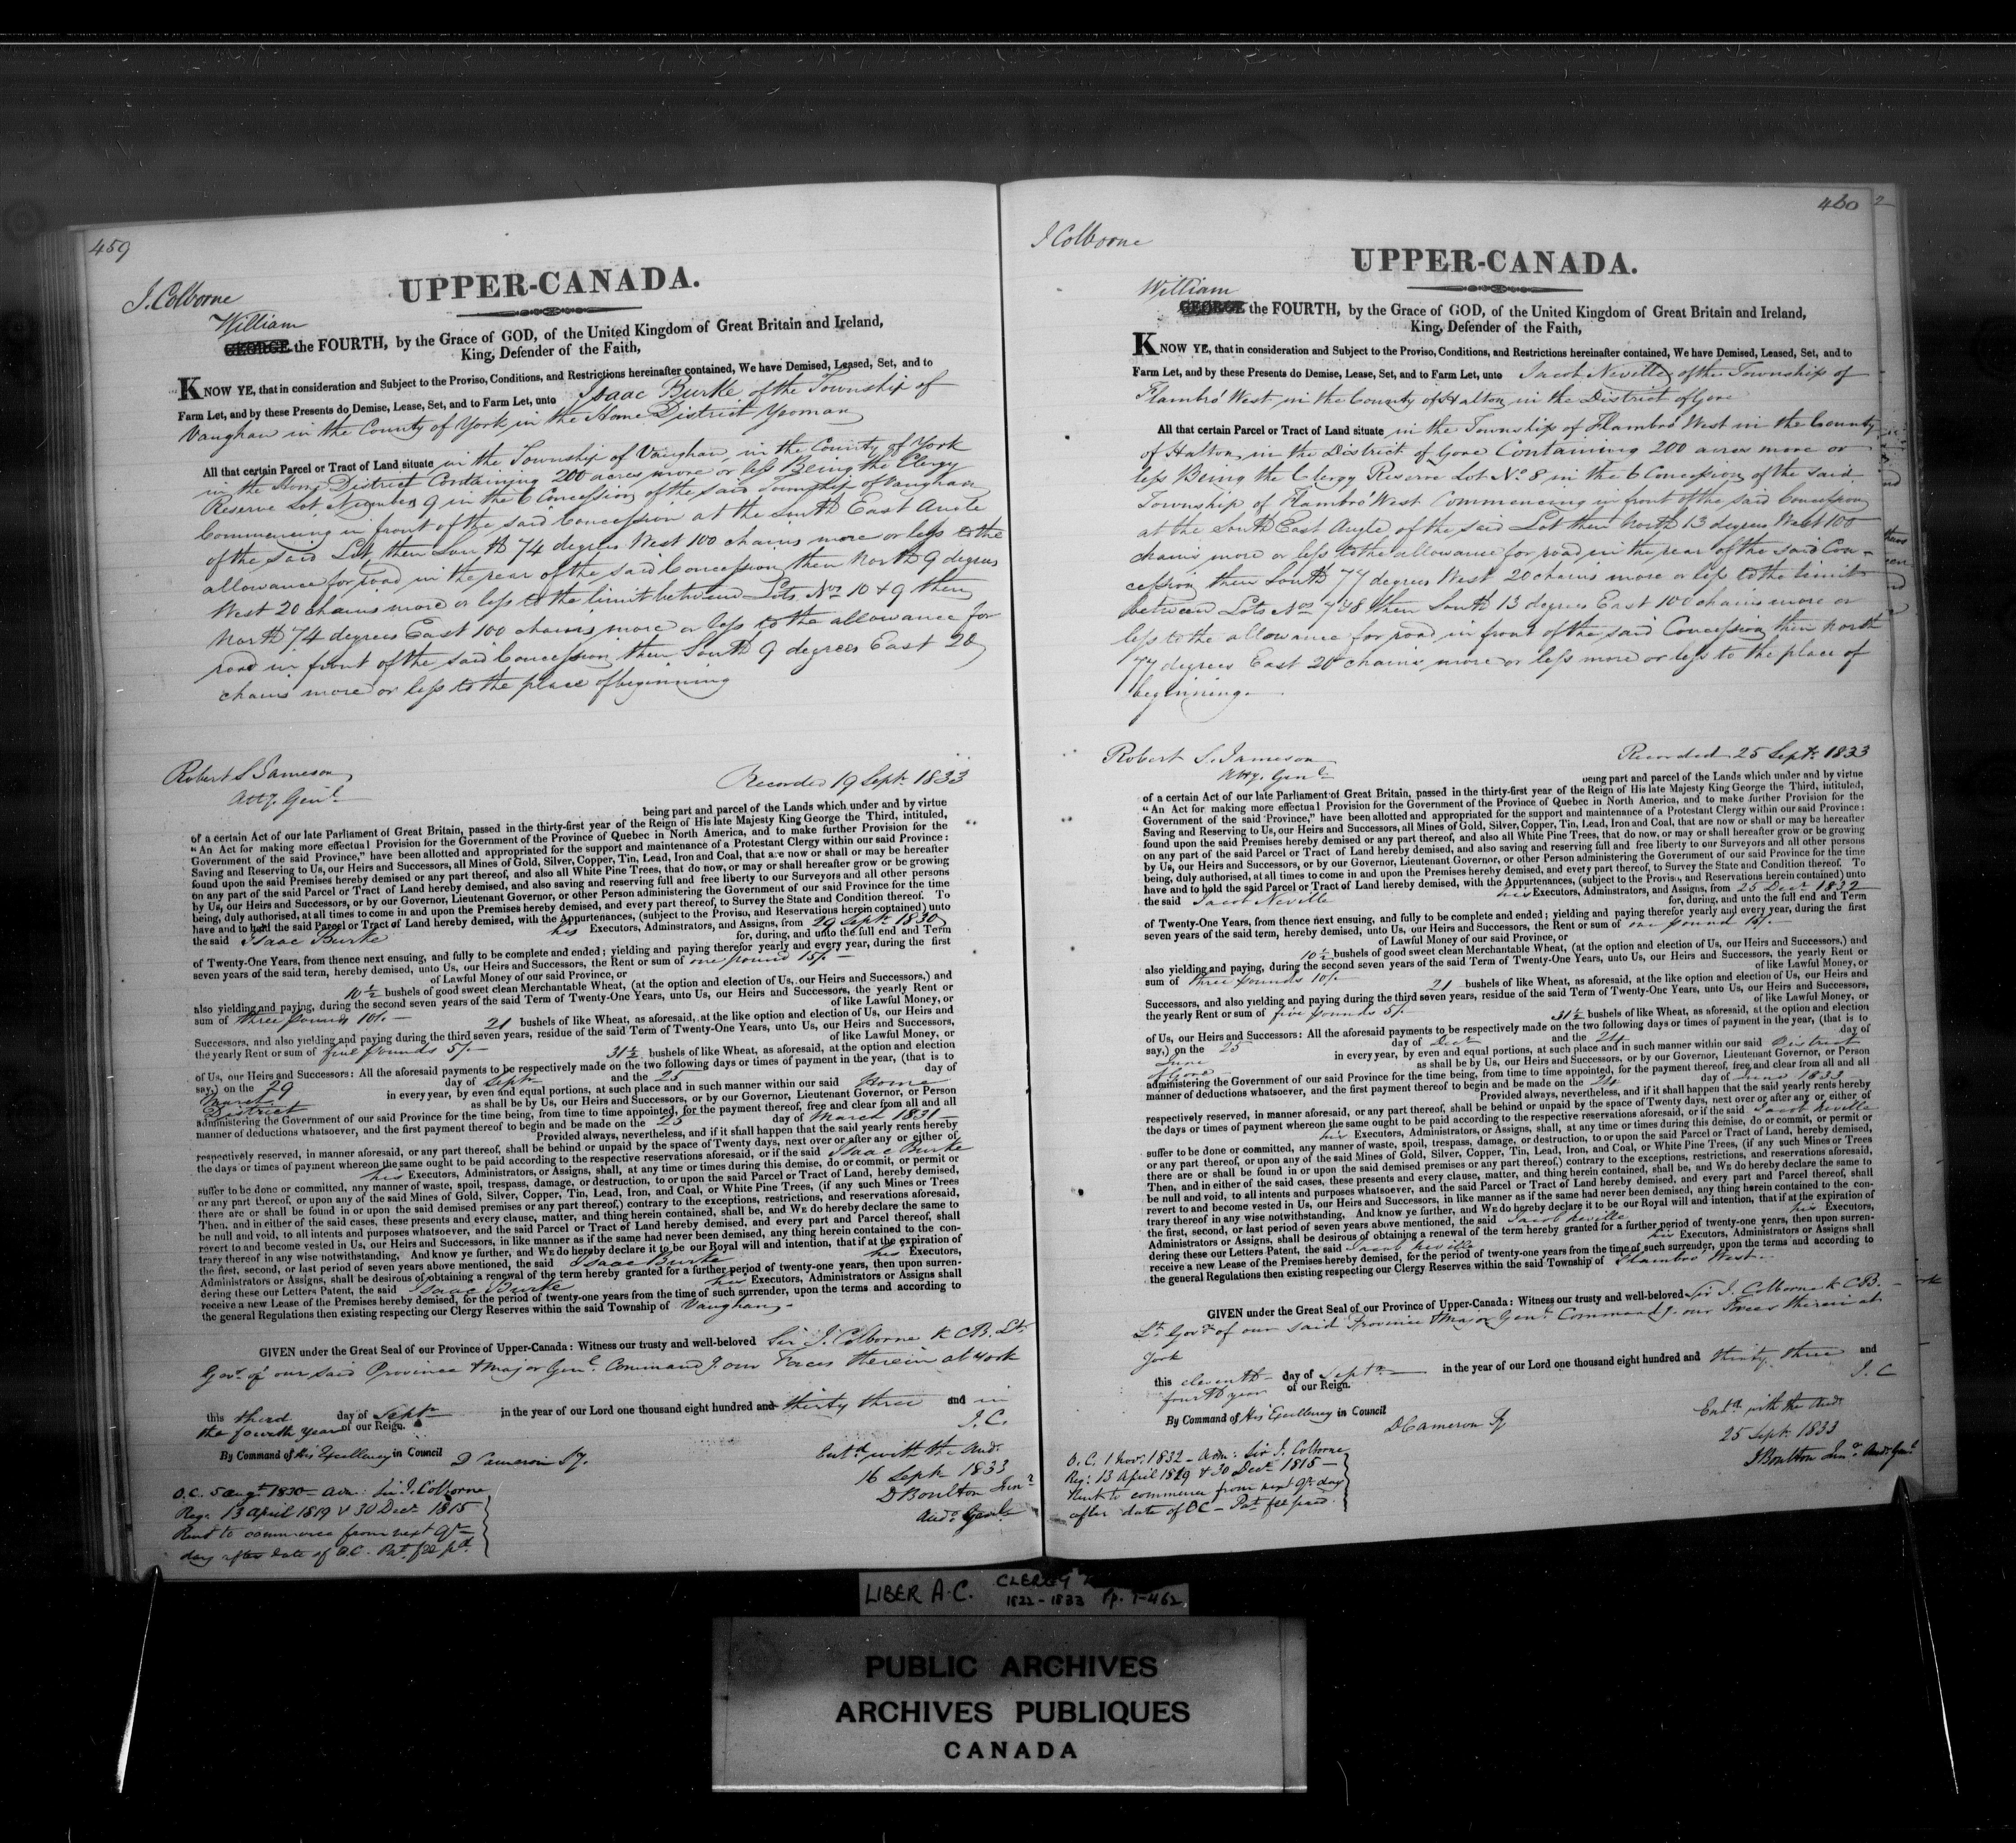 459
J. Colborne
UPPER-CANADA.
William
GEORGE the FOURTH, by the Grace of GOD, of the United Kingdom of Great Britain and Ireland,
King, Defender of the Faith,
KNOW YE, that in consideration and Subject to the Proviso, Conditions, and Restrictions hereinafter contained, We have Demised, Leased, Set, and to
Farm Let, and by these Presents do Demise, Lease, Set, and to Farm Let, unto Isaac Burke of the Township of
Vaughan in the County of York in the Home District Yeoman
All that certain Parcel or Tract of Land situate in the Township of Vaughan, in the County of York
in the Home District Containing 200 acres more or less Being the Clergy
Reserve Lot Number 9 in the 6 Concession of the said Township of Vaughan
Commencing in front of the said Concession at the South East Angle
of the said Lot, then South 74 degrees West 100 chains more or less to the
allowance for road in the rear of the said Concession then North 9 degrees
West 20 chains more or less to the limit between Lots Nos 10 & 9 then
North 74 degrees East 100 chains more or less to the allowance for
road in front of the said Concession then South 9 degrees East 20
chains more or less to the place of beginning
Robert S Jameson
Atty. Genl
Recorded 19 Sept. 1833
being part and parcel of the Lands which under and by virtue
of a certain Act of our late Parliament of Great Britain, passed in the thirty-first year of the Reign of His late Majesty King George the Third, intituled,
"An Act for making more effectual Provision for the Government of the Province of Quebec in North America, and to make further Provision for the
Government of the said Province," have been allotted and appropriated for the support and maintenance of a Protestant Clergy within our said Province:
Saving and Reserving to Us, our Heirs and Successors, all Mines of Gold, Silver, Copper, Tin, Lead, Iron and Coal, that are now or shall or may be hereafter
found upon the said Premises hereby demised or any part thereof, and also all White Pine Trees, that do now, or may or shall hereafter grow or be growing
on any part of the said Parcel or Tract of Land hereby demised, and also saving and reserving full and free liberty to our Surveyors and all other persons
by Us, our Heirs and Successors, or by our Governor, Lieutenant Governor, or other Person administering the Government of our said Province for the time
being, duly authorised, at all times to come in and upon the Premises hereby demised, and every part thereof, to Survey the State and Condition thereof. To
have and to hold the said Parcel or Tract of Land hereby demised, with the Appurtenances, (subject to the Proviso, and Reservations herein contained) unto
the said Isaac Burke his Executors, Adminstrators, and Assigns, from 29 Sept. 1830
for, during, and unto the full end and Term
of Twenty-One Years, from thence next ensuing, and fully to be complete and ended; yielding and paying therefor yearly and every year, during the first
seven years of the said term, hereby demised, unto Us, our Heirs and Successors, the Rent or sum of one pound 15/-
of Lawful Money of our said Province, or
10 1/2 bushels of good sweet clean Merchantable Wheat, (at the option and election of Us, our Heirs and Successors,) and
also yielding and paying, during the second seven years of the said Term of Twenty-One Years, unto Us, our Heirs and Successors, the yearly Rent or
sum of three pounds 10/- of like Lawful Money, or
21 bushels of like Wheat, as aforesaid, at the like option and election of Us, our Heirs and
Successors, and also yielding and paying during the third seven years, residue of the said Term of Twenty-One Years, unto Us, our Heirs and Successors,
the yearly Rent or sum of five pounds 5/- of like Lawful Money, or
31 1/2 bushels of like Wheat, as aforesaid, at the option and election
of Us, our Heirs and Successors: All the aforesaid payments to be respectively made on the two following days or times of payment in the year, (that is to
say,) on the 29 day of Septr and the 25 day of
March in every year, by even and equal portions, at such place and in such manner within our said Home
District as shall be by Us, our Heirs and Successors, or by our Governor, Lieutenant Governor, or Person
administering the Government of our said Province for the time being, from time to time appointed, for the payment thereof, free and clear from all and all
manner of deductions whatsoever, and the first payment thereof to begin and be made on the 25 day of March 1831
Provided always, nevertheless, and if it shall happen that the said yearly rents hereby
respectively reserved, in manner aforesaid, or any part thereof, shall be behind or unpaid by the space of Twenty days, next over or after any or either of
the days or times of payment whereon the same ought to be paid according to the respective reservations aforesaid, or if the said Isaac Burke
his Executors, Administrators, or Assigns, shall, at any time or times during this demise, do or commit, or permit or
suffer to be done or committed, any manner of waste, spoil, trespass, damage, or destruction, to or upon the said Parcel or Tract of Land hereby demised,
or any part thereof, or upon any of the said Mines of Gold, Silver, Copper, Tin, Lead, Iron, and Coal, or White Pine Trees, (if any such Mines or Trees
there are or shall be found in or upon the said demised premises or any part thereof,) contrary to the exceptions, restrictions, and reservations aforesaid,
Then, and in either of the said cases, these presents and every clause, matter, and thing herein contained, shall be, and WE do hereby declare the same to
be null and void, to all intents and purposes whatsoever, and the said Parcel or Tract of Land hereby demised, and every part and Parcel thereof, shall
revert to and become vested in Us, our Heirs and Successors, in like manner as if the same had never been demised, any thing herein contained to the con-
trary thereof in any wise notwithstanding. And know ye further, and WE do hereby declare it to be our Royal will and intention, that if at the expiration of
the first, second, or last period of seven years above mentioned, the said Isaac Burke his Executors,
Administrators or Assigns, shall be desirous of obtaining a renewal of the term hereby granted for a further period of twenty-one years, then upon surren-
dering these our Letters Patent, the said Isaac Burke his Executors, Administrators or Assigns shall
receive a new Lease of the Premises hereby demised, for the period of twenty-one years from the time of such surrender, upon the terms and according to
the general Regulations then existing respecting our Clergy Reserves within the said Township of Vaughan.
GIVEN under the Great Seal of our Province of Upper-Canada: Witness our trusty and well-beloved Sir J. Colborne K.C.B. Lt.
Govr of our said Province & Major Genl Commandg our Forces therein at York
this third day of Septr in the year of our Lord one thousand eight hundred and thirty three and in
the fourth year of our Reign. J.C.
By Command of His Excellency in Council D Cameron Sy.
Entd with the Audr
16 Sept 1833
D Boulton Junr
Audr Genl
O.C. 5 augt 1830 - Adn: Sir J. Colborne
Reg: 13 April 1819 & 30 Decr 1815
Rent to commence from next Qr
day after date of O.C. Pat. fee pd.
460
2
J Colborne
UPPER-CANADA.
William
GEORGE the FOURTH, by the Grace of GOD, of the United Kingdom of Great Britain and Ireland,
King, Defender of the Faith,
KNOW YE, that in consideration and Subject to the Proviso, Conditions, and Restrictions hereinafter contained, We have Demised, Leased, Set, and to
Farm Let, and by these Presents do Demise, Lease, Set, and to Farm Let, unto Jacob Neville of the Township of
Flambro' West, in the County of Halton, in the District of Gore
All that certain Parcel or Tract of Land situate in the Township of Flambro West in the County
of Halton in the District of Gore Containing 200 acres more or
less Being the Clergy Reserve Lot No. 8 in the 6 Concession of the said
Township of Flambro West Commencing in front of the said Concession
at the South East Angle of the said Lot then North 13 degrees West 100
chains more or less to the allowance for road in the rear of the said Con-
cession, then South 77 degrees West 20 chains more or less to the limit
between Lots Nos 7 & 8 then South 13 degrees East 100 chains more or
less to the allowance for road in front of the said Concession then North
77 degrees East 20 chains more or less more or less to the place of
beginning.
Robert S. Jameson
Atty. Genl
Recorded 25 Septr. 1833
being part and parcel of the Lands which under and by virtue
of a certain Act of our late Parliament of Great Britain, passed in the thirty-first year of the Reign of His late Majesty King George the Third, intituled,
"An Act for making more effectual Provision for the Government of the Province of Quebec in North America, and to make further Provision for the
Government of the said Province," have been allotted and appropriated for the support and maintenance of a Protestant Clergy within our said Province:
Saving and Reserving to Us, our Heirs and Successors, all Mines of Gold, Silver, Copper, Tin, Lead, Iron and Coal, that are now or shall or may be hereafter
found upon the said Premises hereby demised or any part thereof, and also all White Pine Trees, that do now, or may or shall hereafter grow or be growing
on any part of the said Parcel or Tract of Land hereby demised, and also saving and reserving full and free liberty to our Surveyors and all other persons
by Us, our Heirs and Successors, or by our Governor, Lieutenant Governor, or other Person administering the Government of our said Province for the time
being, duly authorised, at all times to come in and upon the Premises hereby demised, and every part thereof, to Survey the State and Condition thereof. To
have and to hold the said Parcel or Tract of Land hereby demised, with the Appurtenances, (subject to the Proviso, and Reservations herein contained) unto
the said Jacob Neville his Executors, Adminstrators, and Assigns, from 25 Decr 1832
for, during, and unto the full end and Term
of Twenty-One Years, from thence next ensuing, and fully to be complete and ended; yielding and paying therefor yearly and every year, during the first
seven years of the said term, hereby demised, unto Us, our Heirs and Successors, the Rent or sum of one pound 15/-
of Lawful Money of our said Province, or
10 1/2 bushels of good sweet clean Merchantable Wheat, (at the option and election of Us, our Heirs and Successors,) and
also yielding and paying, during the second seven years of the said Term of Twenty-One Years, unto Us, our Heirs and Successors, the yearly Rent or
sum of three pounds 10/- of like Lawful Money, or
21 bushels of like Wheat, as aforesaid, at the like option and election of Us, our Heirs and
Successors, and also yielding and paying during the third seven years, residue of the said Term of Twenty-One Years, unto Us, our Heirs and Successors,
the yearly Rent or sum of five pounds 5/- of like Lawful Money, or
31 1/2 bushels of like Wheat, as aforesaid, at the option and election
of Us, our Heirs and Successors: All the aforesaid payments to be respectively made on the two following days or times of payment in the year, (that is to
say,) on the 25 day of Decr and the 24 day of
June in every year, by even and equal portions, at such place and in such manner within our said District
of Gore as shall be by Us, our Heirs and Successors, or by our Governor, Lieutenant Governor, or Person
administering the Government of our said Province for the time being, from time to time appointed, for the payment thereof, free and clear from all and all
manner of deductions whatsoever, and the first payment thereof to begin and be made on the 24 day of June 1833
Provided always, nevertheless, and if it shall happen that the said yearly rents hereby
respectively reserved, in manner aforesaid, or any part thereof, shall be behind or unpaid by the space of Twenty days, next over or after any or either of
the days or times of payment whereon the same ought to be paid according to the respective reservations aforesaid, or if the said Jacob Neville
his Executors, Administrators, or Assigns, shall, at any time or times during this demise, do or commit, or permit or
suffer to be done or committed, any manner of waste, spoil, trespass, damage, or destruction, to or upon the said Parcel or Tract of Land hereby demised,
or any part thereof, or upon any of the said Mines of Gold, Silver, Copper, Tin, Lead, Iron, and Coal, or White Pine Trees, (if any such Mines or Trees
there are or shall be found in or upon the said demised premises or any part thereof,) contrary to the exceptions, restrictions, and reservations aforesaid,
Then, and in either of the said cases, these presents and every clause, matter, and thing herein contained, shall be, and WE do hereby declare the same to
be null and void, to all intents and purposes whatsoever, and the said Parcel or Tract of Land hereby demised, and every part and Parcel thereof, shall
revert to and become vested in Us, our Heirs and Successors, in like manner as if the same had never been demised, any thing herein contained to the con-
trary thereof in any wise notwithstanding. And know ye further, and WE do hereby declare it to be our Royal will and intention, that if at the expiration of
the first, second, or last period of seven years above mentioned, the said Jacob Neville his Executors,
Administrators or Assigns, shall be desirous of obtaining a renewal of the term hereby granted for a further period of twenty-one years, then upon surren-
dering these our Letters Patent, the said Jacob Neville his Executors, Administrators or Assigns shall
receive a new Lease of the Premises hereby demised, for the period of twenty-one years from the time of such surrender, upon the terms and according to
the general Regulations then existing respecting our Clergy Reserves within the said Township of Flambro West.
GIVEN under the Great Seal of our Province of Upper-Canada: Witness our trusty and well-beloved Sir J. Colborne K.C.B.
Lt. Govr of our said Province & Major Genl Commandg our Forces therein at
York
this eleventh day of Septr in the year of our Lord one thousand eight hundred and thirty three and
fourth year of our Reign. J.C
By Command of His Excellency in Council D Cameron Sy
Entd with the Audr
25 Sept 1833
D Boulton Junr Audr Genl
O.C. 1 Novr. 1832 - Adn: Sir J. Colborne
Reg: 13 April 1819 & 30 Decr 1815
Rent to commence from next Qr day
after date of OC - Pat fee paid.
LIBER A.C. CLERGY
1822-1833 Pp. 1-462
PUBLIC ARCHIVES
ARCHIVES PUBLIQUES
CANADA